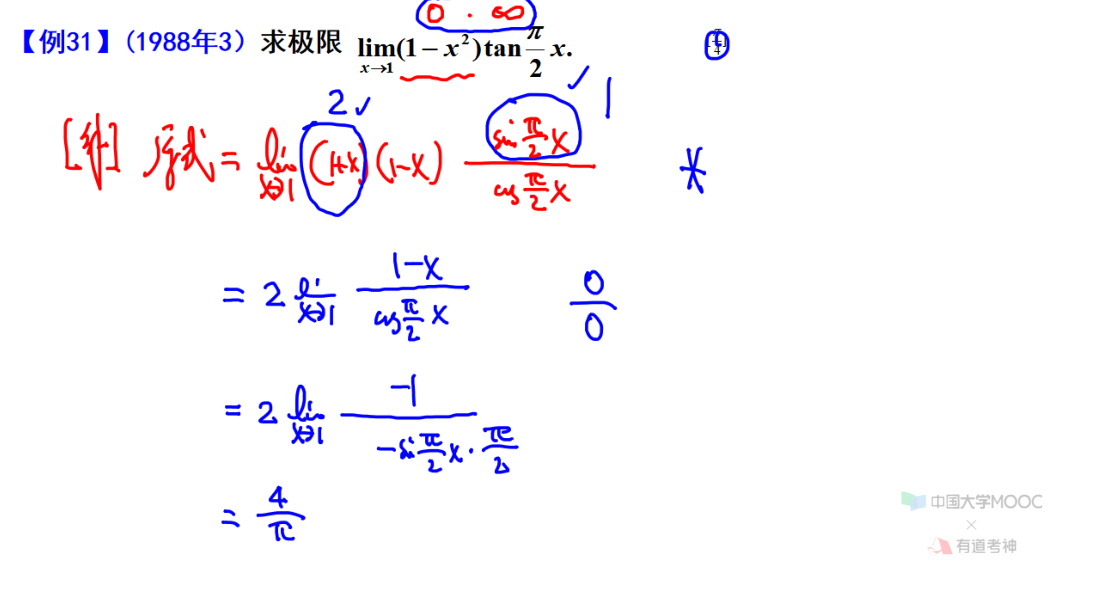 0 · ∞
【例31】(1988年3) 求极限 lim x→1 (1 − x²) tan π/2 x.
2 ✓ ✓ 1
[解] 原式 = lim x→1 (1+x)(1-x) sin π/2 x / cos π/2 x *
= 2 lim x→1 1-x / cos π/2 x 0/0
= 2 lim x→1 -1 / -sin π/2 x · π/2
= 4/π
中国大学MOOC
×
有道考神